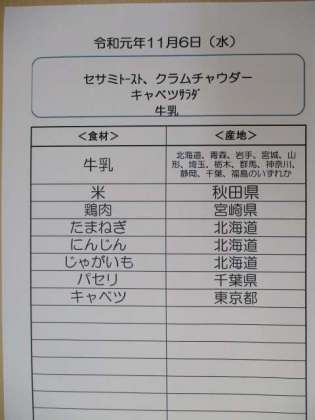 令和元年11月6日（水）
セサミﾄｰｽﾄ、クラムチャウダー
キャベツｻﾗﾀﾞ
牛乳
＜食材＞ ＜産地＞
牛乳 北海道、青森、岩手、宮城、山
形、埼玉、栃木、群馬、神奈川、
静岡、千葉、福島のいずれか
米 秋田県
鶏肉 宮崎県
たまねぎ 北海道
にんじん 北海道
じゃがいも 北海道
パセリ 千葉県
キャベツ 東京都